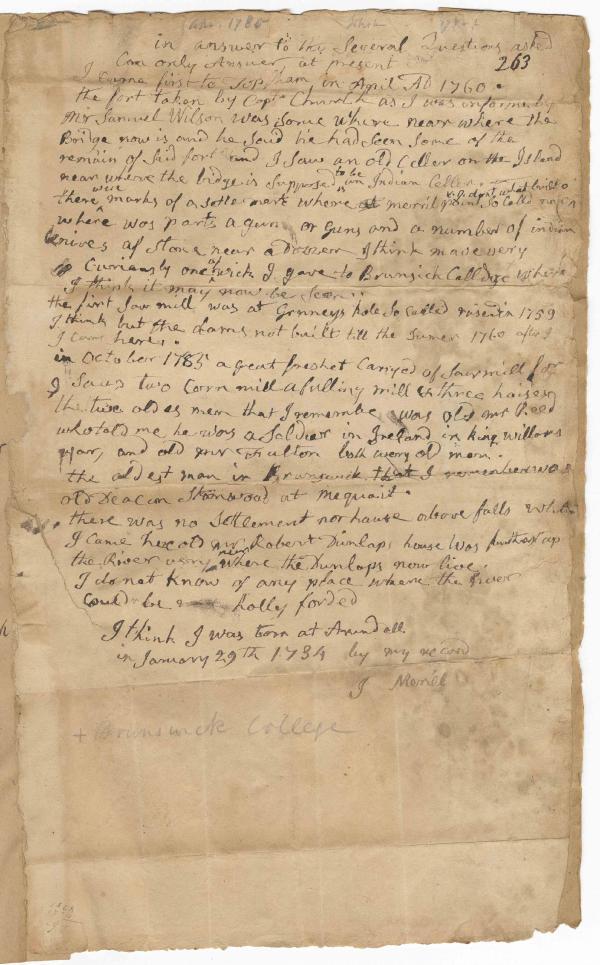 in answer to thy Several Questions asked
Can only Answer, at present
263
I came first to Topsham in April AD 1760.
the fort taken by Capt. Church as I was informed by
Mr Samuel Wilson was some where near where the
Bridge now is and he said he had seen some of the
remain of said fort and I saw an old Celler on the Island
near where the bridge is supposed to be an Indian Celler.
there were marks of a settlement where at merril point, so Calld
where was part a gun or guns and a number of indian
knives of stone near a Dozzen I think made very
Curiously one of wich I gave to Brunsick Calledge where
I think it may now be seen
the first Saw mill was at Grnneys hole So called raised in 1759
I think but the dam not built till the Sumer 1760 after I
I came here.
in October 1785 a great freshet Carryed of Sawmill for
I Saw two Corn mill a fulling mill & three houses
the two oldes men that I remembe was old mr Reed
who told me he was a Soldier in Ireland in king williams
war, and old mr Fulton both very old men.
the oldest man in Brunswick that I remember was
old Deacon Stanwood at Mequait.
there was no Settlement nor house above falls when
I came here old mr Robert Dunlaps house was further up
the River very near where the Dunlaps now live.
I do not know of any place where the River
Could be holly forded
I think I was born at Arundell
in January 29th 1734 by my record
J Merrill
+ Brunswick College